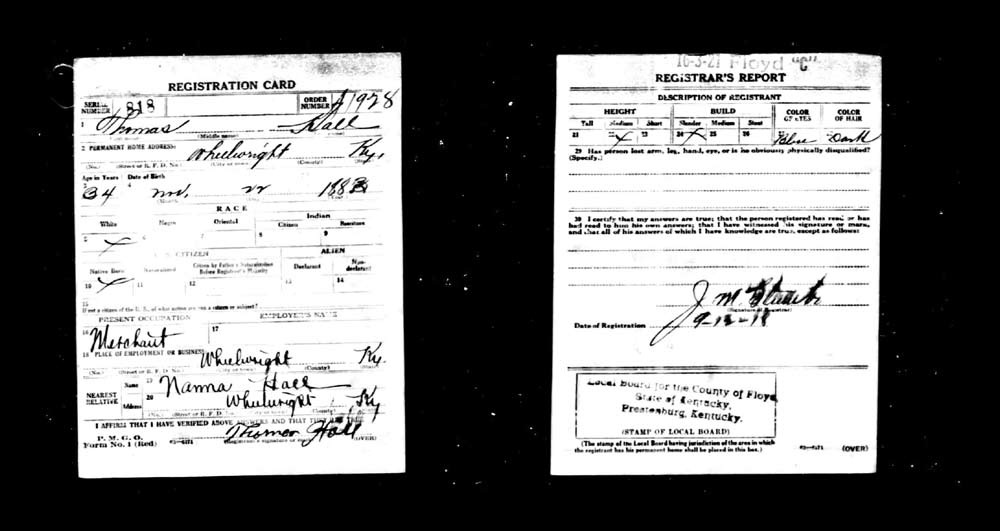 REGISTRATION CARD
SERIAL NUMBER 818 ORDER NUMBER A1928
1 Thomas Hall
(Middle name)
2 PERMANENT HOME ADDRESS: Wheelwright Ky.
(No.) (Street or R. F. D. No.) (City or town) (County) (State)
Age in Years Date of Birth
34 4 188
RACE
White Negro Oriental Indian
Citizen Noncitizen
5 X 6 7 8 9
U. S. CITIZEN ALIEN
Native Born Naturalized Citizen by Father's Naturalization Before Registrant's Majority Declarant Non-declarant
10 X 11 12 13 14
15
If not a citizen of the U. S., of what nation are you a citizen or subject?
PRESENT OCCUPATION EMPLOYER'S NAME
16 Merchant 17
18 PLACE OF EMPLOYMENT OR BUSINESS: Wheelwright Ky.
(No.) (Street or R. F. D. No.) (City or town) (County) (State)
NEAREST RELATIVE Name 19 Nanna Hall
Address 20 Wheelwright, Ky
(No.) (Street or R. F. D. No.) (City or town) (County) (State)
I AFFIRM THAT I HAVE VERIFIED ABOVE ANSWERS AND THAT THEY ARE TRUE
P. M. G. O.
Form No. 1 (Red) Thomas Hall
(Registrant's signature or mark) (OVER)
16-3-21 Floyd "C"
REGISTRAR'S REPORT
DESCRIPTION OF REGISTRANT
HEIGHT BUILD COLOR OF EYES COLOR OF HAIR
Tall Medium Short Slender Medium Stout
21 22 X 23 24 X 25 26 Blue Dark
29 Has person lost arm, leg, hand, eye, or is he obviously physically disqualified?
(Specify.)
30 I certify that my answers are true; that the person registered has read or has
had read to him his own answers; that I have witnessed his signature or mark,
and that all of his answers of which I have knowledge are true, except as follows:
J M
(Signature of Registrar)
Date of Registration 9-12-18
Local Board for the County of Floyd,
State of Kentucky,
Prestonburg, Kentucky.
(STAMP OF LOCAL BOARD)
(The stamp of the Local Board having jurisdiction of the area in which
the registrant has his permanent home shall be placed in this box.)
(OVER)